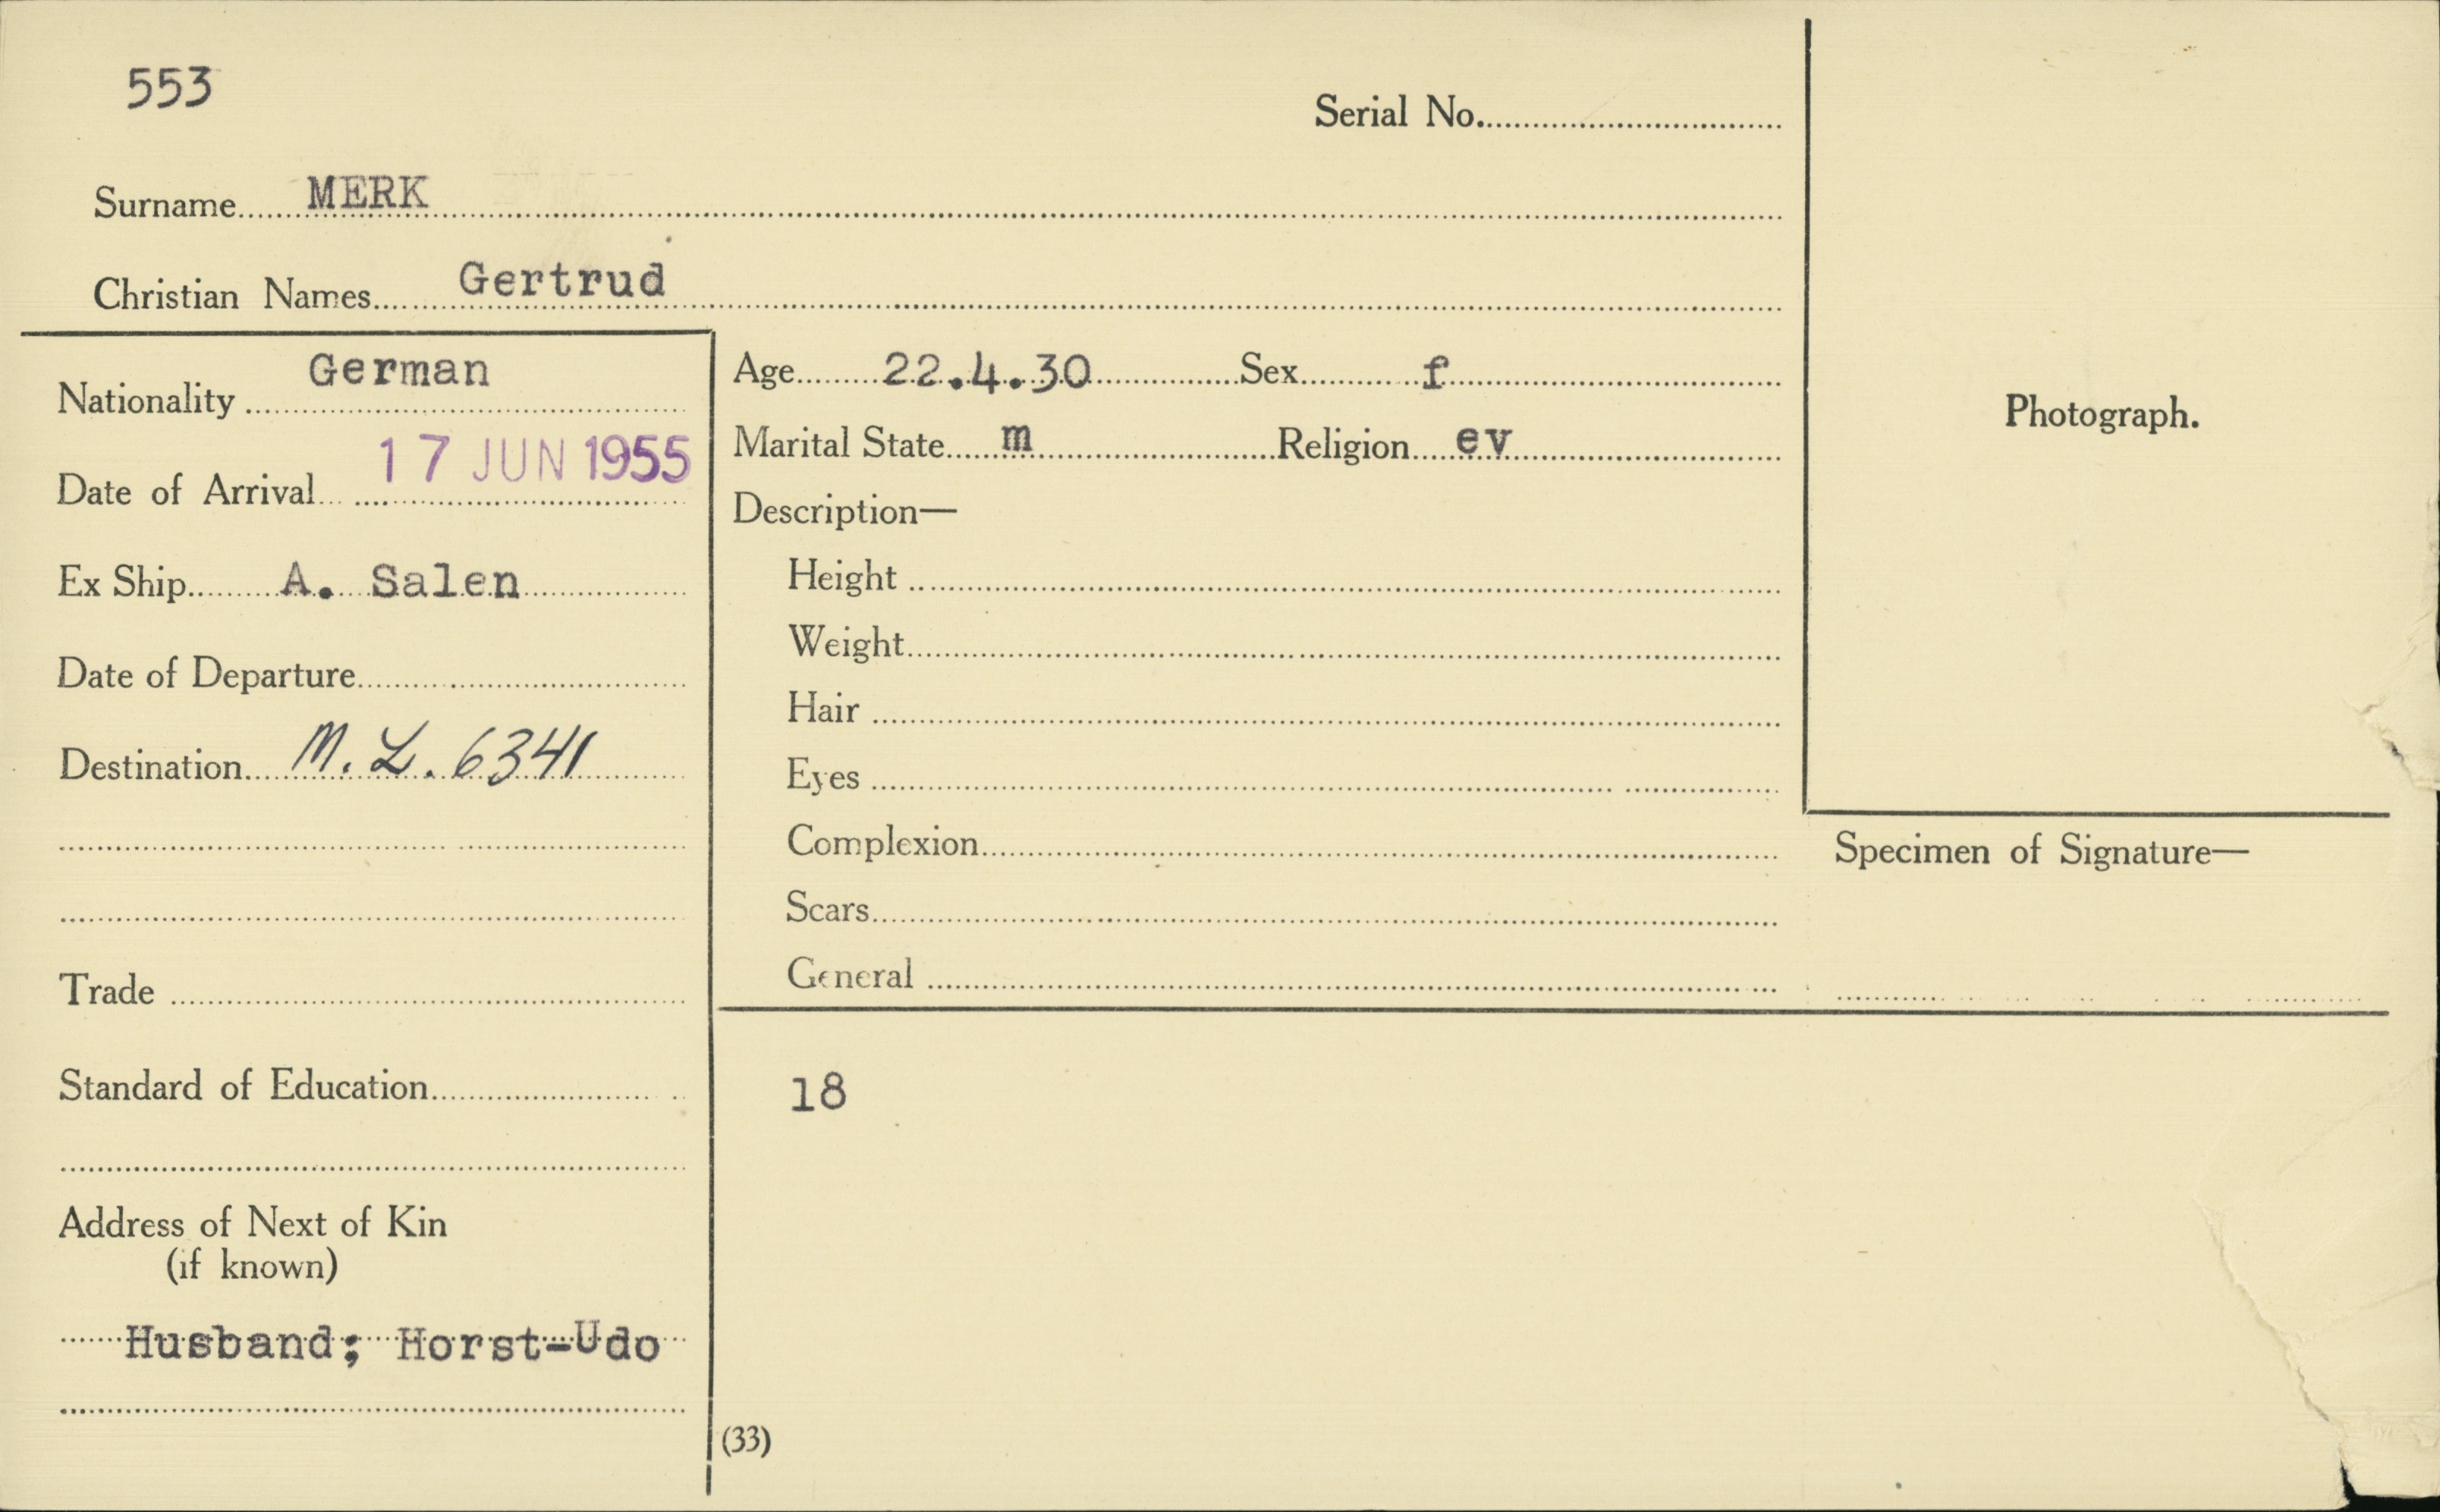 553
Serial No.
Surname MERK
Christian Names Gertrud
Nationality German
Date of Arrival 17 JUN 1955
Ex Ship A. Salen
Date of Departure
Destination M. L. 6341
Trade
Standard of Education
Address of Next of Kin
(if known)
Husband; Horst-Udo
Age 22.4.30 Sex f
Marital State m Religion ev
Description—
Height
Weight
Hair
Eyes
Complexion
Scars
General
18
(33)
Photograph.
Specimen of Signature—